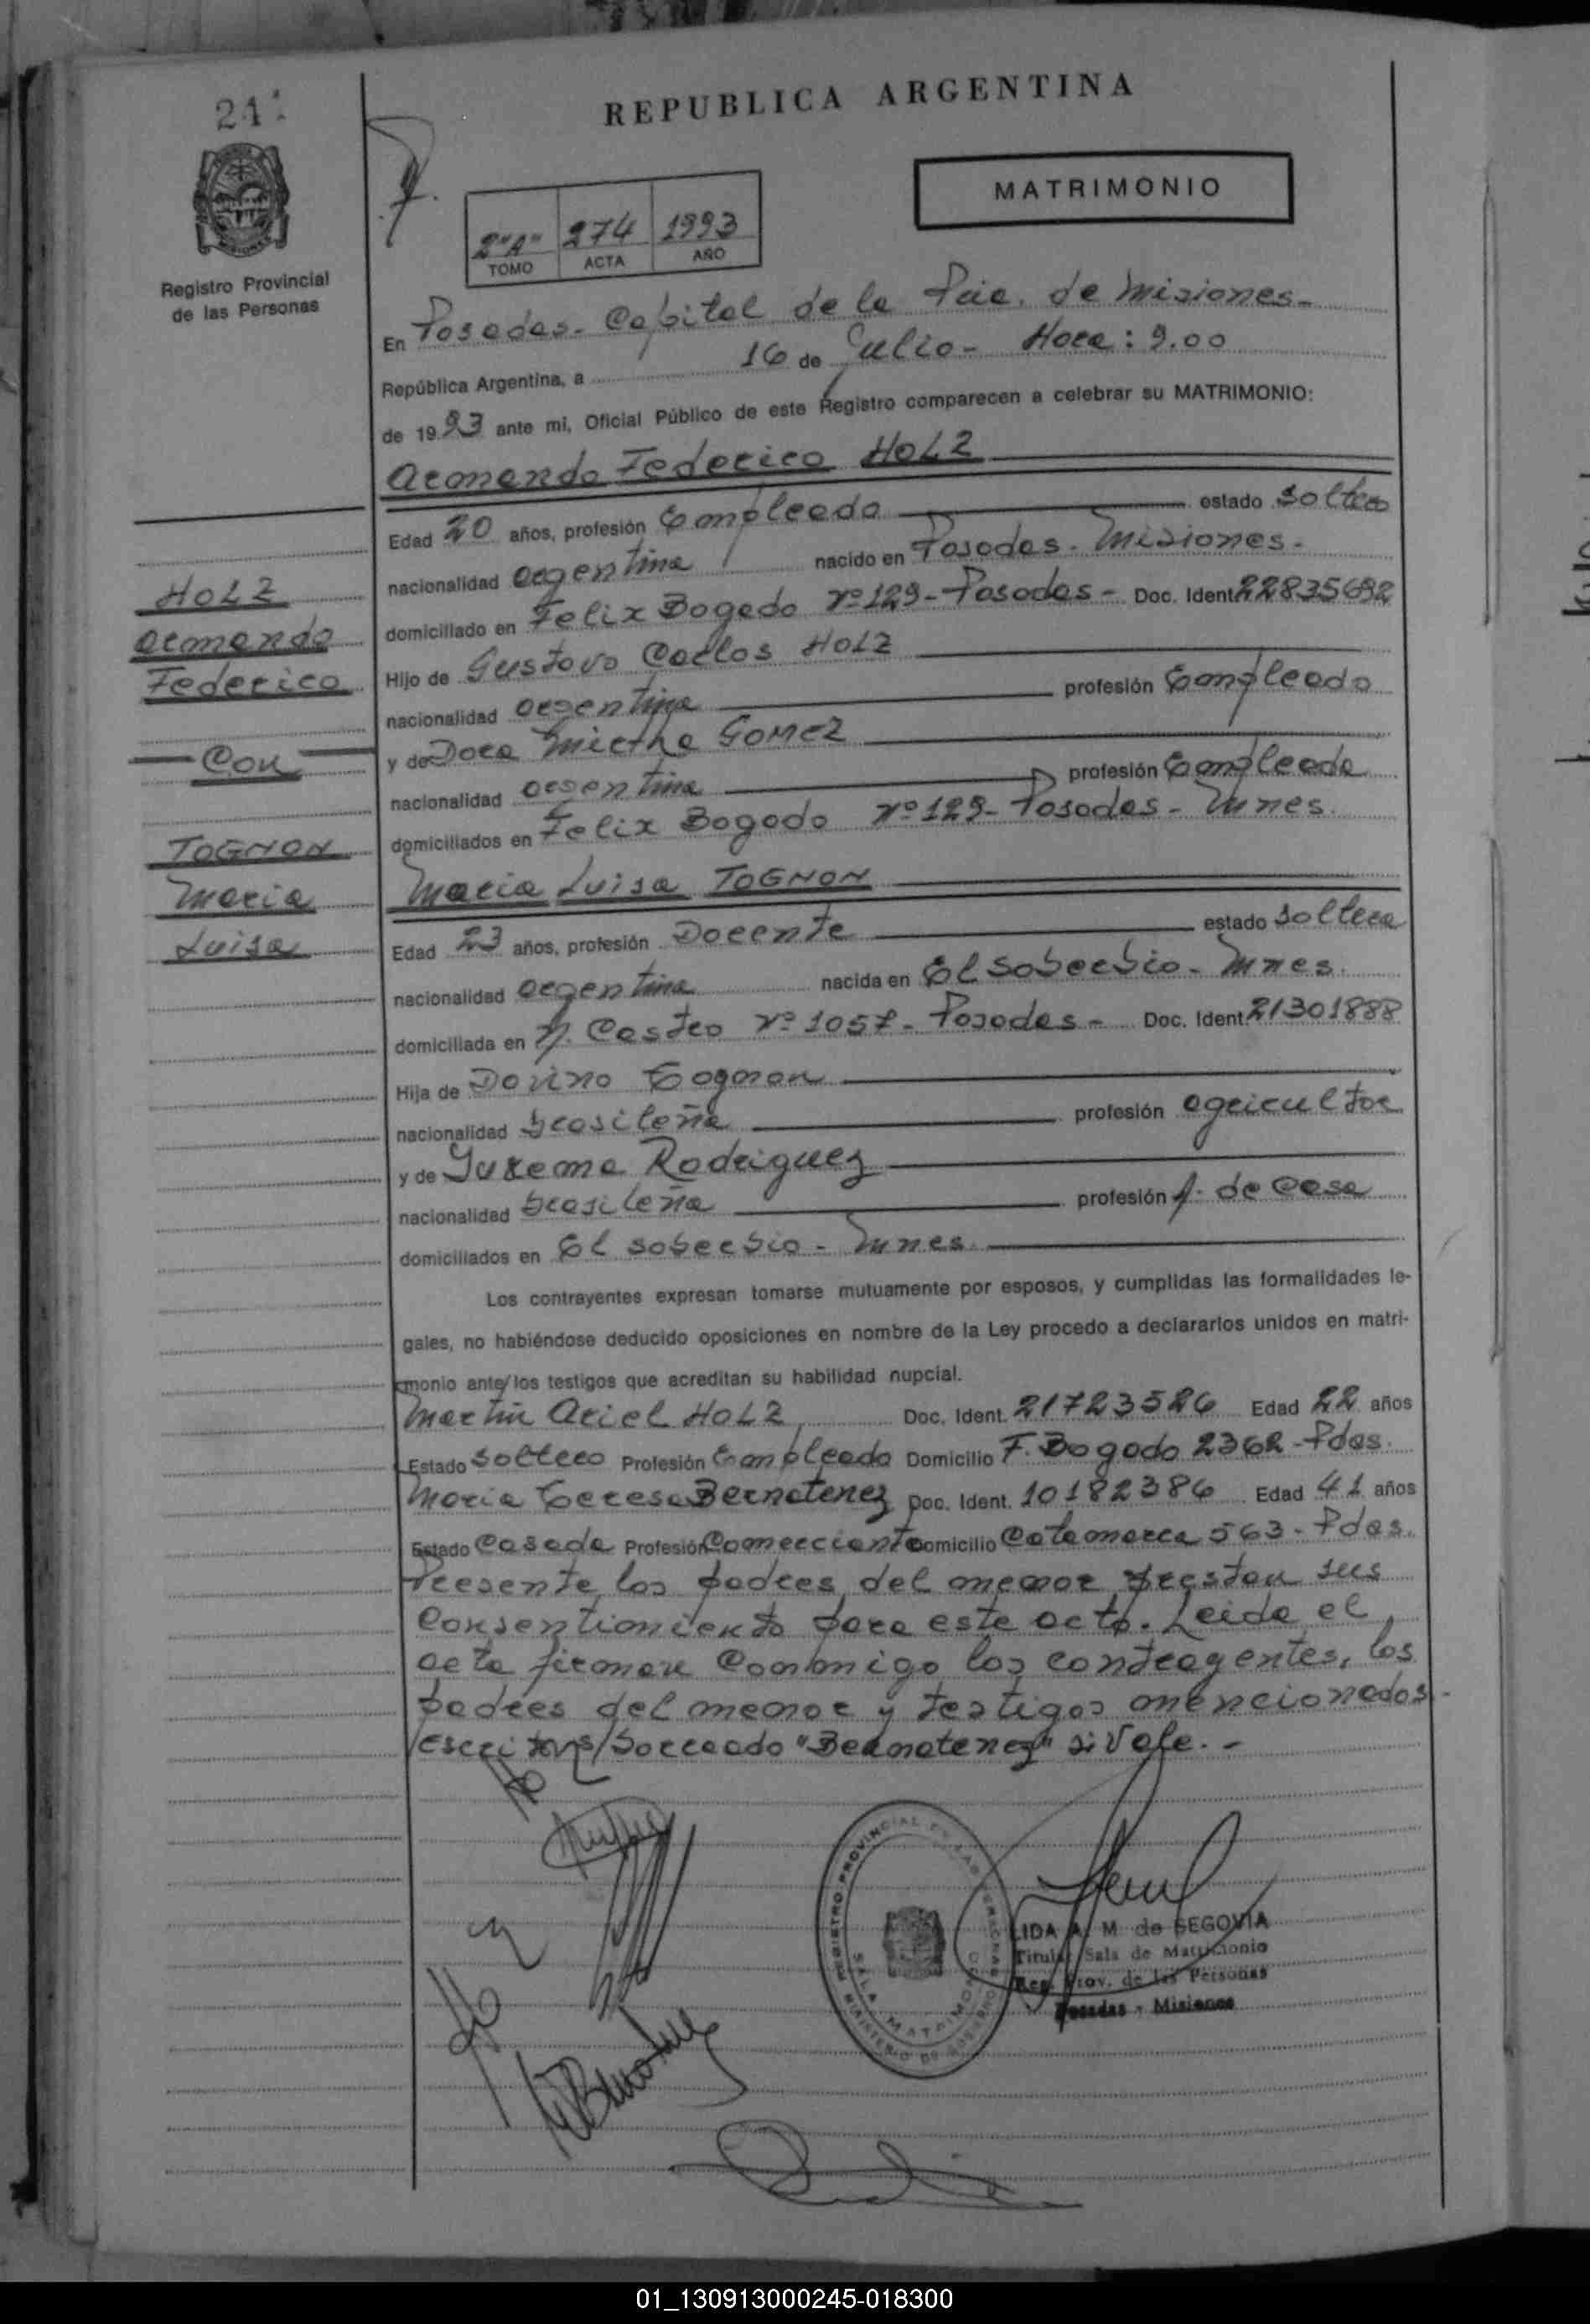 241
REPUBLICA ARGENTINA
MATRIMONIO
2"A" 274 1993
TOMO ACTA AÑO
Registro Provincial
de las Personas
En Posadas - Capital de la Pcia. de Misiones -
República Argentina, a 16 de Julio - Hora: 9.00
de 1993 ante mi, Oficial Público de este Registro comparecen a celebrar su MATRIMONIO:
Armando Federico HOLZ
Edad 20 años, profesión Empleado estado soltero
nacionalidad argentina nacido en Posadas - Misiones -
domiciliado en Felix Bogado Nº 129 - Posadas - Doc. Ident. 22835692
Hijo de Gustavo Carlos HOLZ
nacionalidad argentina profesión Empleado
y de Dora Mirtha GOMEZ
nacionalidad argentina profesión Empleada
domiciliados en Felix Bogado Nº 129 - Posadas - Mnes.
Maria Luisa TOGNON
Edad 23 años, profesión Docente estado soltera
nacionalidad argentina nacida en El Soberbio - Mnes.
domiciliada en Castro Nº 1057 - Posadas - Doc. Ident. 21301888
Hija de Dovino Tognon
nacionalidad brasileña profesión agricultor
y de Jurema Rodriguez
nacionalidad brasileña profesión A. de Casa
domiciliados en El Soberbio - Mnes.
Los contrayentes expresan tomarse mutuamente por esposos, y cumplidas las formalidades le-
gales, no habiéndose deducido oposiciones en nombre de la Ley procedo a declararlos unidos en matri-
monio ante los testigos que acreditan su habilidad nupcial.
Martin Ariel HOLZ Doc. Ident. 21723526 Edad 22 años
Estado soltero Profesión Empleado Domicilio F. Bogado 2362 - Pdas.
Maria Teresa Bernatenez Doc. Ident. 10182386 Edad 41 años
Estado Casada Profesión Comerciante Domicilio Catamarca 563 - Pdas.
Presente los padres del menor prestan sus
consentimiento para este acto. Leida el
acta firman conmigo los contrayentes, los
padres del menor y testigos mencionados -
escrito s/borrado "Bernatenez" si Vale. -
HOLZ
Armando
Federico
Con
TOGNON
Maria
Luisa
REGISTRO PROVINCIAL DE LAS PERSONAS
SALA MATRIMONIO
MINISTERIO DE GOBIERNO
LIDA A. M. de SEGOVIA
Titular Sala de Matrimonio
Reg. Prov. de las Personas
Posadas - Misiones
01_130913000245-018300